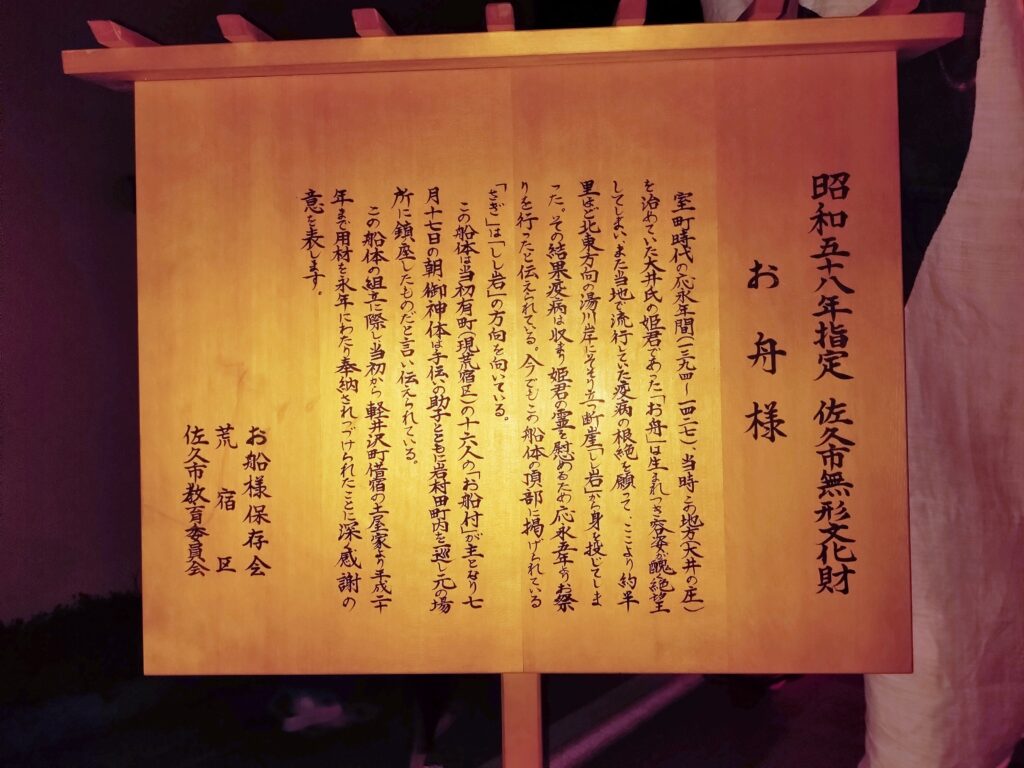 昭和五十八年指定 佐久市無形文化財
お舟様
室町時代の応永年間(一三九四〜一四二七)、当時この地方(大井の庄)
を治めていた大井氏の姫君であった「お舟」は生まれつき容姿が醜く絶望
してしまい、また当地で流行していた疫病の根絶を願って、ここより約半
里ほど北東方向の湯川岸にそそり立つ断崖「しし岩」から身を投じてしま
った。その結果疫病は収まり姫君の霊を慰めるため応永五年よりお祭
りを行ったと伝えられている。今でもこの船体の頂部に掲げられている
「さぎ」は「しし岩」の方向を向いている。
この船体は当初有町(現荒宿区)の十六人の「お船村」が主となり七
月十七日の朝御神体は手伝いの助子とともに岩村田町内を一巡し元の場
所に鎮座したものだと言い伝えられている。
この船体の組立に際し当初から軽井沢町借宿の土屋家より平成二十
年まで用材を永年にわたり奉納されつづけられたことに深く感謝の
意を表します。
お船様保存会
荒宿区
佐久市教育委員会